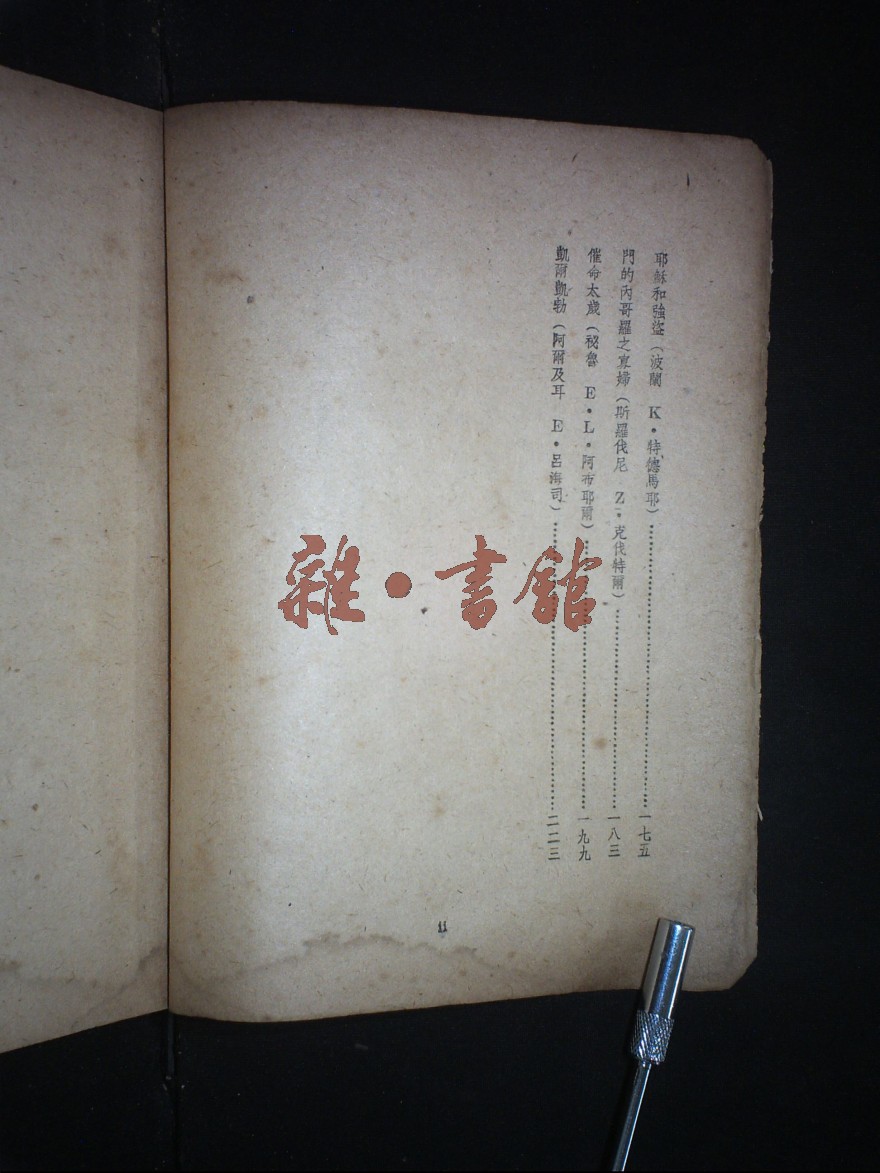 耶穌和強盜（波蘭　K·特德馬耶）……一七五
門的內哥羅之寡婦（斯羅伐尼　Z·克伐特爾）……一八三
催命太歲（祕魯　E·L·阿布耶爾）……一九九
凱爾凱勃（阿爾及耳　E·呂海司）……二二三
11
雜·書館